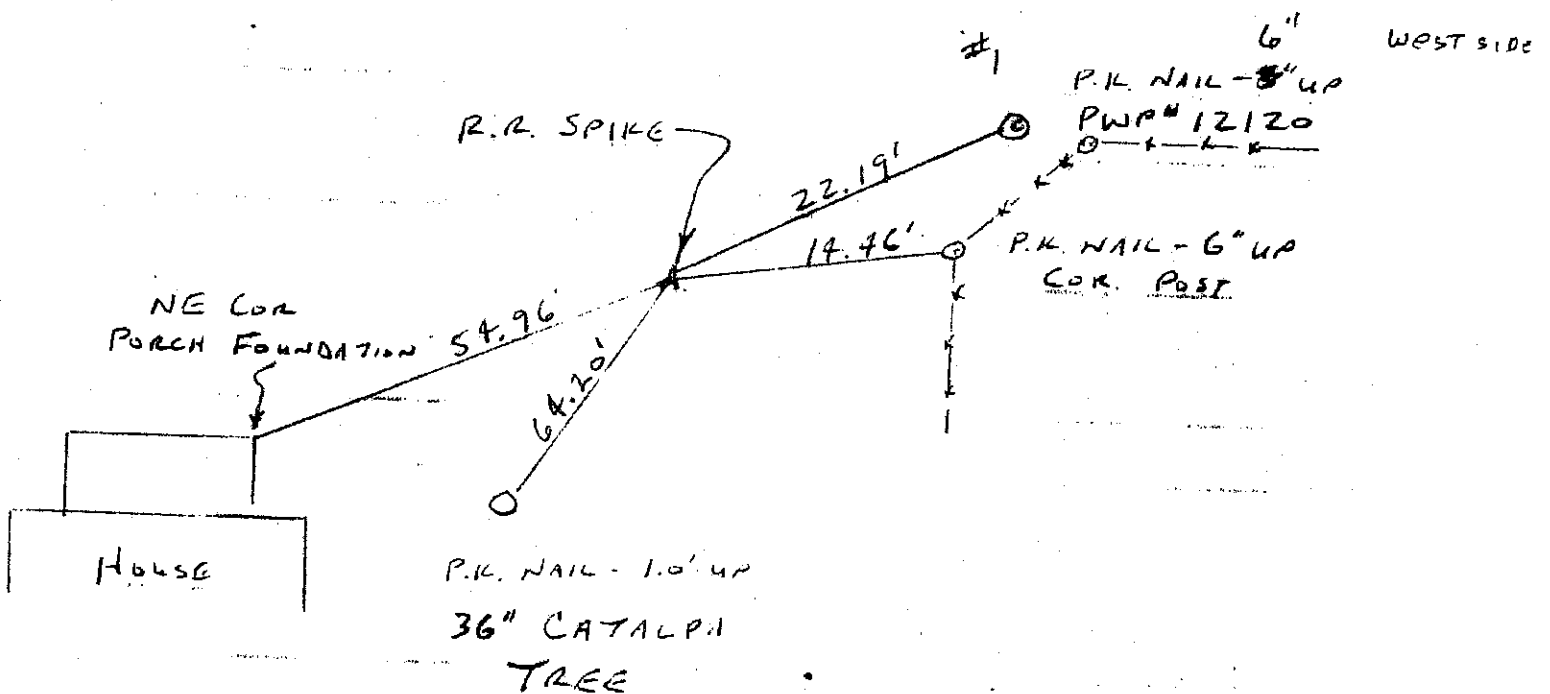 #1
6" WEST SIDE
P.K. NAIL - " UP
PWP# 12120
R.R. SPIKE
22.19'
14.46'
P.K. NAIL - 6" UP
COR. POST
NE COR
PORCH FOUNDATION
54.96'
64.20'
HOUSE
P.K. NAIL - 1.0' UP
36" CATALPA
TREE